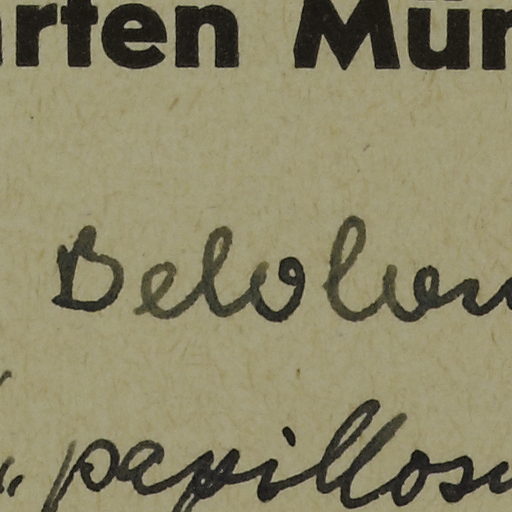 arten Mün
Belolon
papillosu